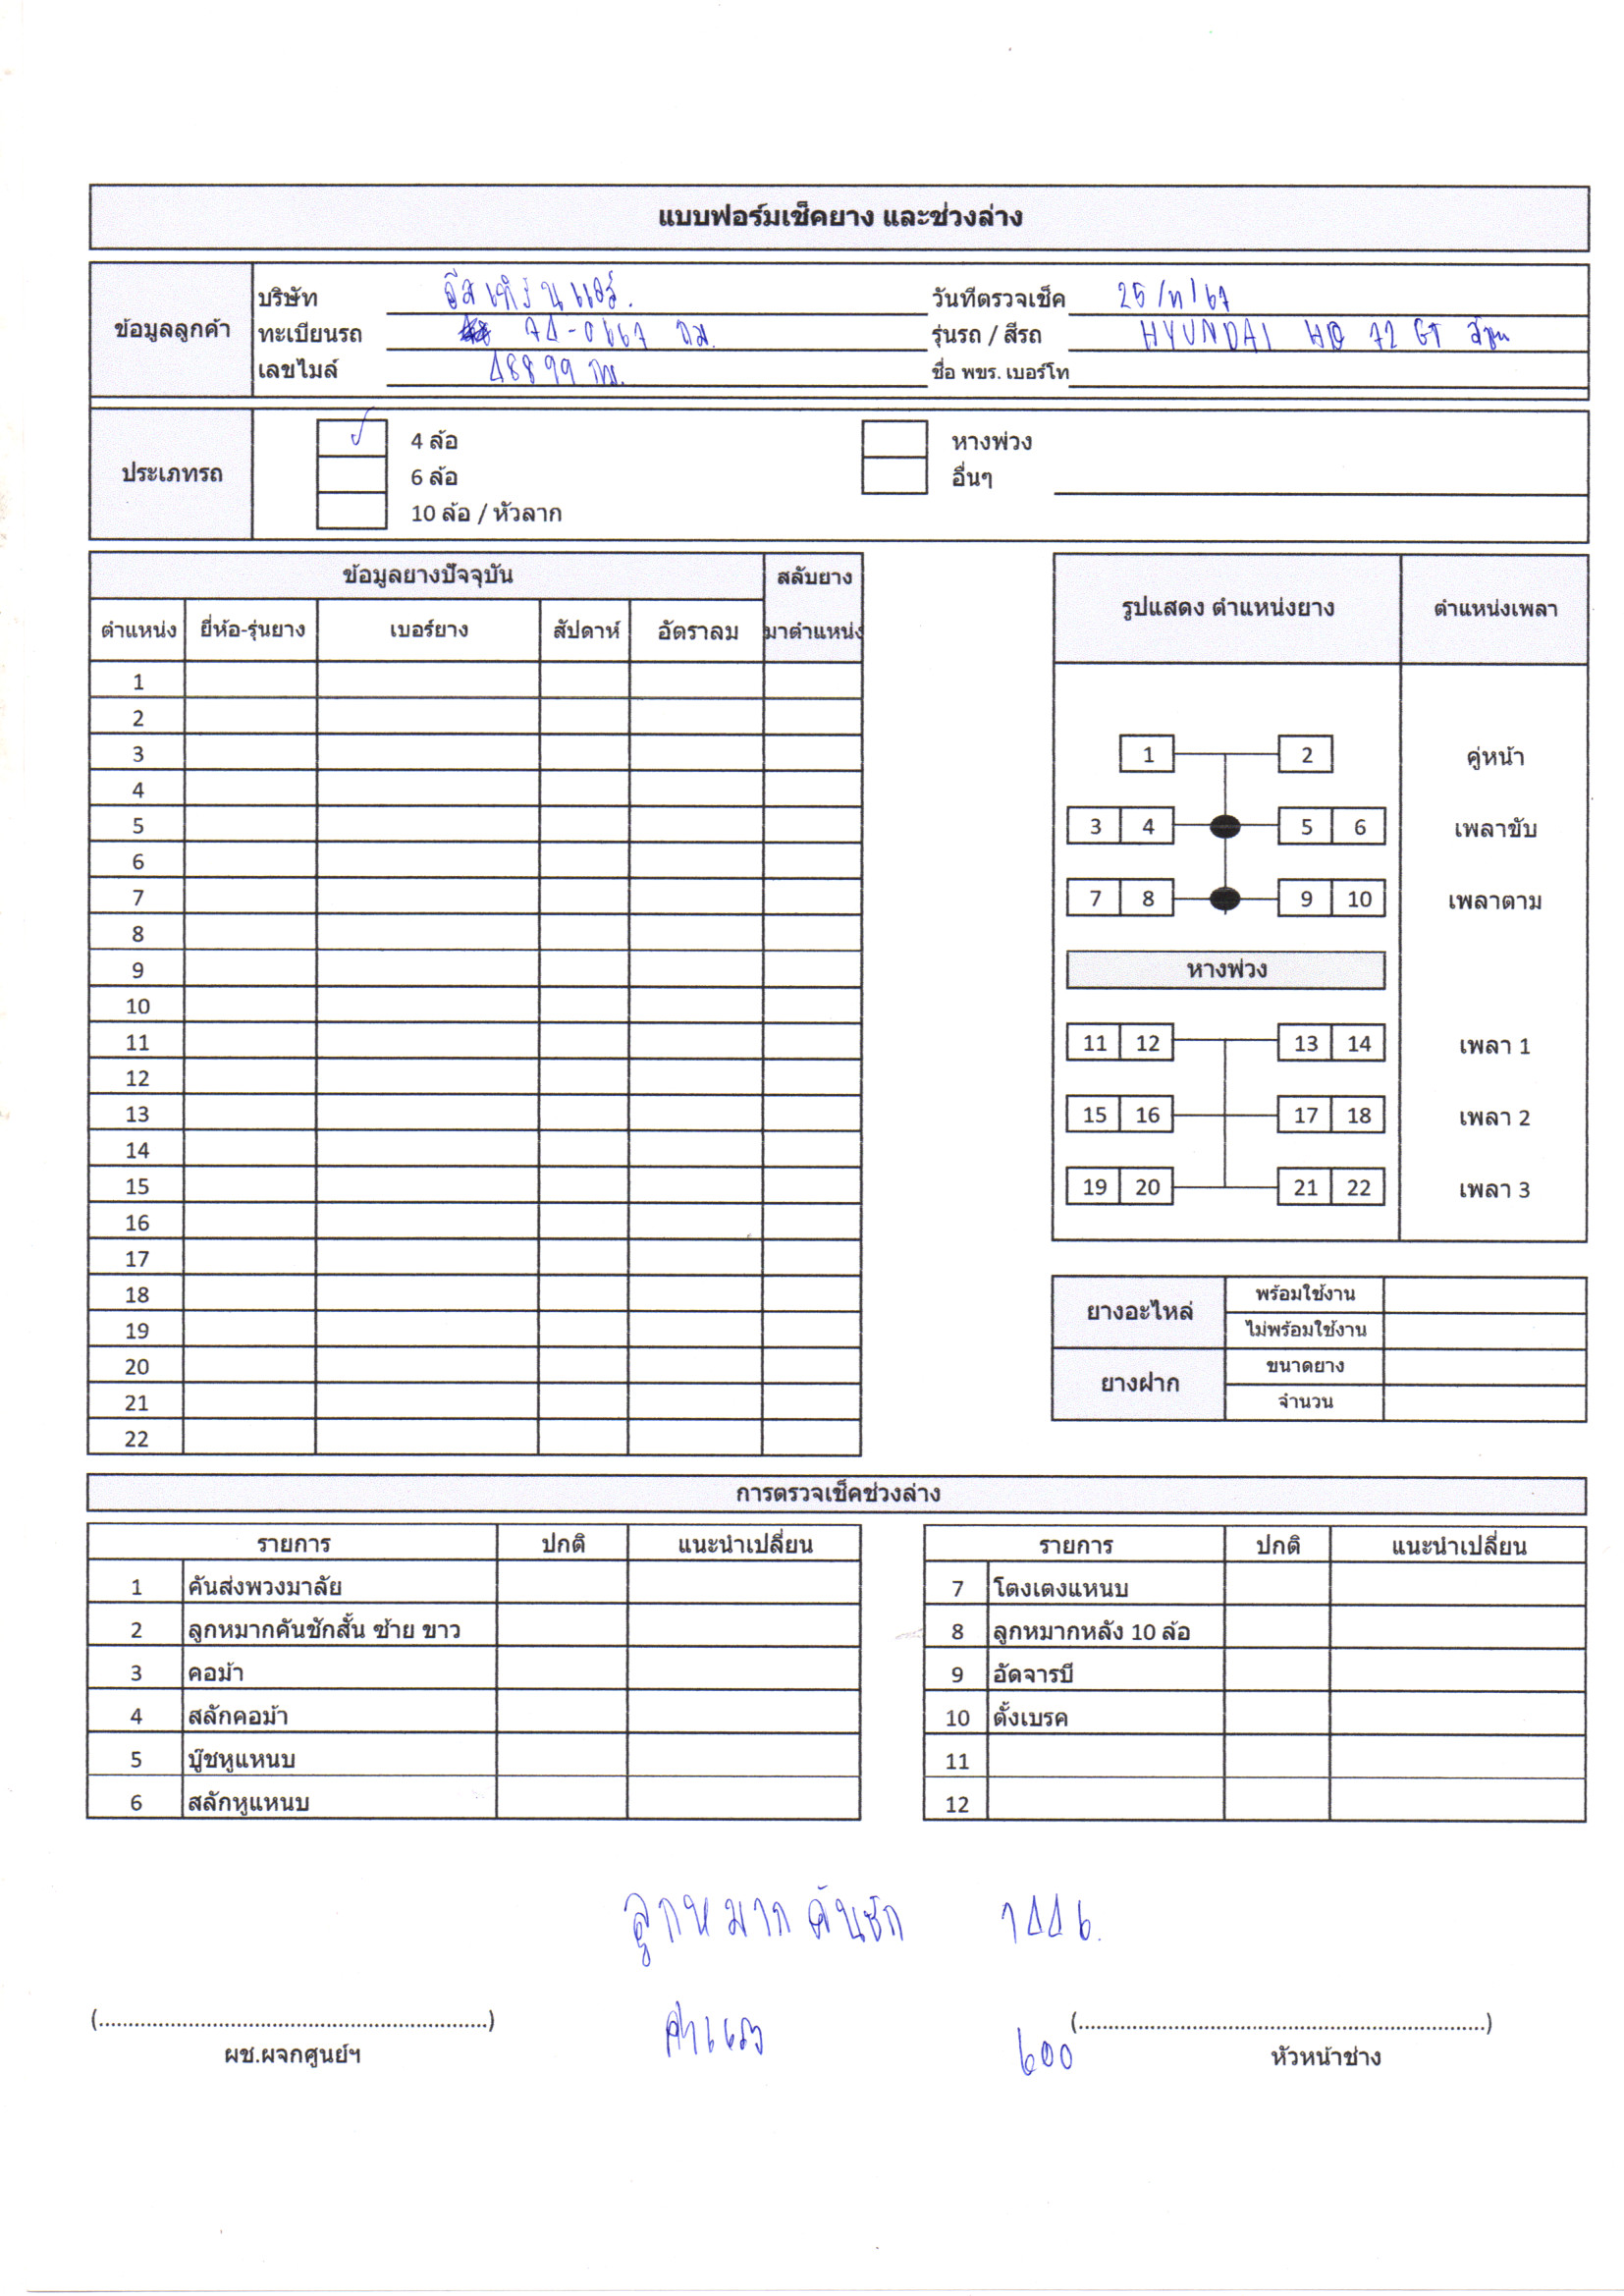 แบบฟอร์มเช็คยาง และช่วงล่าง
ข้อมูลลูกค้า
บริษัท อีสเทิร์นแอร์. วันที่ตรวจเช็ค 25/7/67
ทะเบียนรถ 74-0667 กม. รุ่นรถ / สีรถ HYUNDAI HD 72 GT
เลขไมล์ 48899 กม. ชื่อ พขร. เบอร์โท
ประเภทรถ
4 ล้อ หางพ่วง
6 ล้อ อื่นๆ
10 ล้อ / หัวลาก
ข้อมูลยางปัจจุบัน สลับยาง
ตำแหน่ง ยี่ห้อ-รุ่นยาง เบอร์ยาง สัปดาห์ อัตราลม มาตำแหน่ง
1
2
3
4
5
6
7
8
9
10
11
12
13
14
15
16
17
18
19
20
21
22
รูปแสดง ตำแหน่งยาง ตำแหน่งเพลา
1 2 คู่หน้า
3 4 5 6 เพลาขับ
7 8 9 10 เพลาตาม
หางพ่วง
11 12 13 14 เพลา 1
15 16 17 18 เพลา 2
19 20 21 22 เพลา 3
ยางอะไหล่ พร้อมใช้งาน
ไม่พร้อมใช้งาน
ยางฝาก ขนาดยาง
จำนวน
การตรวจเช็คช่วงล่าง
รายการ ปกติ แนะนำเปลี่ยน
1 คันส่งพวงมาลัย
2 ลูกหมากคันชักสั้น ซ้าย ขาว
3 คอม้า
4 สลักคอม้า
5 บู๊ชหูแหนบ
6 สลักหูแหนบ
รายการ ปกติ แนะนำเปลี่ยน
7 โตงเตงแหนบ
8 ลูกหมากหลัง 10 ล้อ
9 อัดจารบี
10 ตั้งเบรค
11
12
ลูกหมากคันชัก 1446.
ค่าแรง 600
(....................................................................) (....................................................................)
ผช.ผจกศูนย์ฯ หัวหน้าช่าง